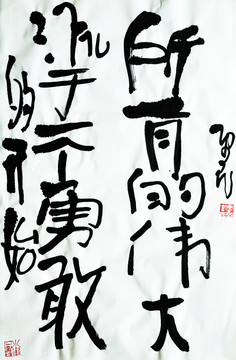 所有的伟大
源于一个勇敢
的开始